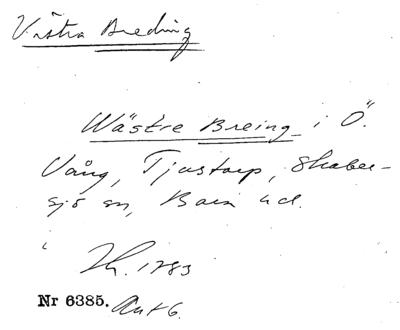 Västra Breding
Wästre Breing i Ö.
Vång, Tjustorp, Skaber-
sjö sn, Bara hd.
Lr. 1783
Nr 6385. Akt 6.